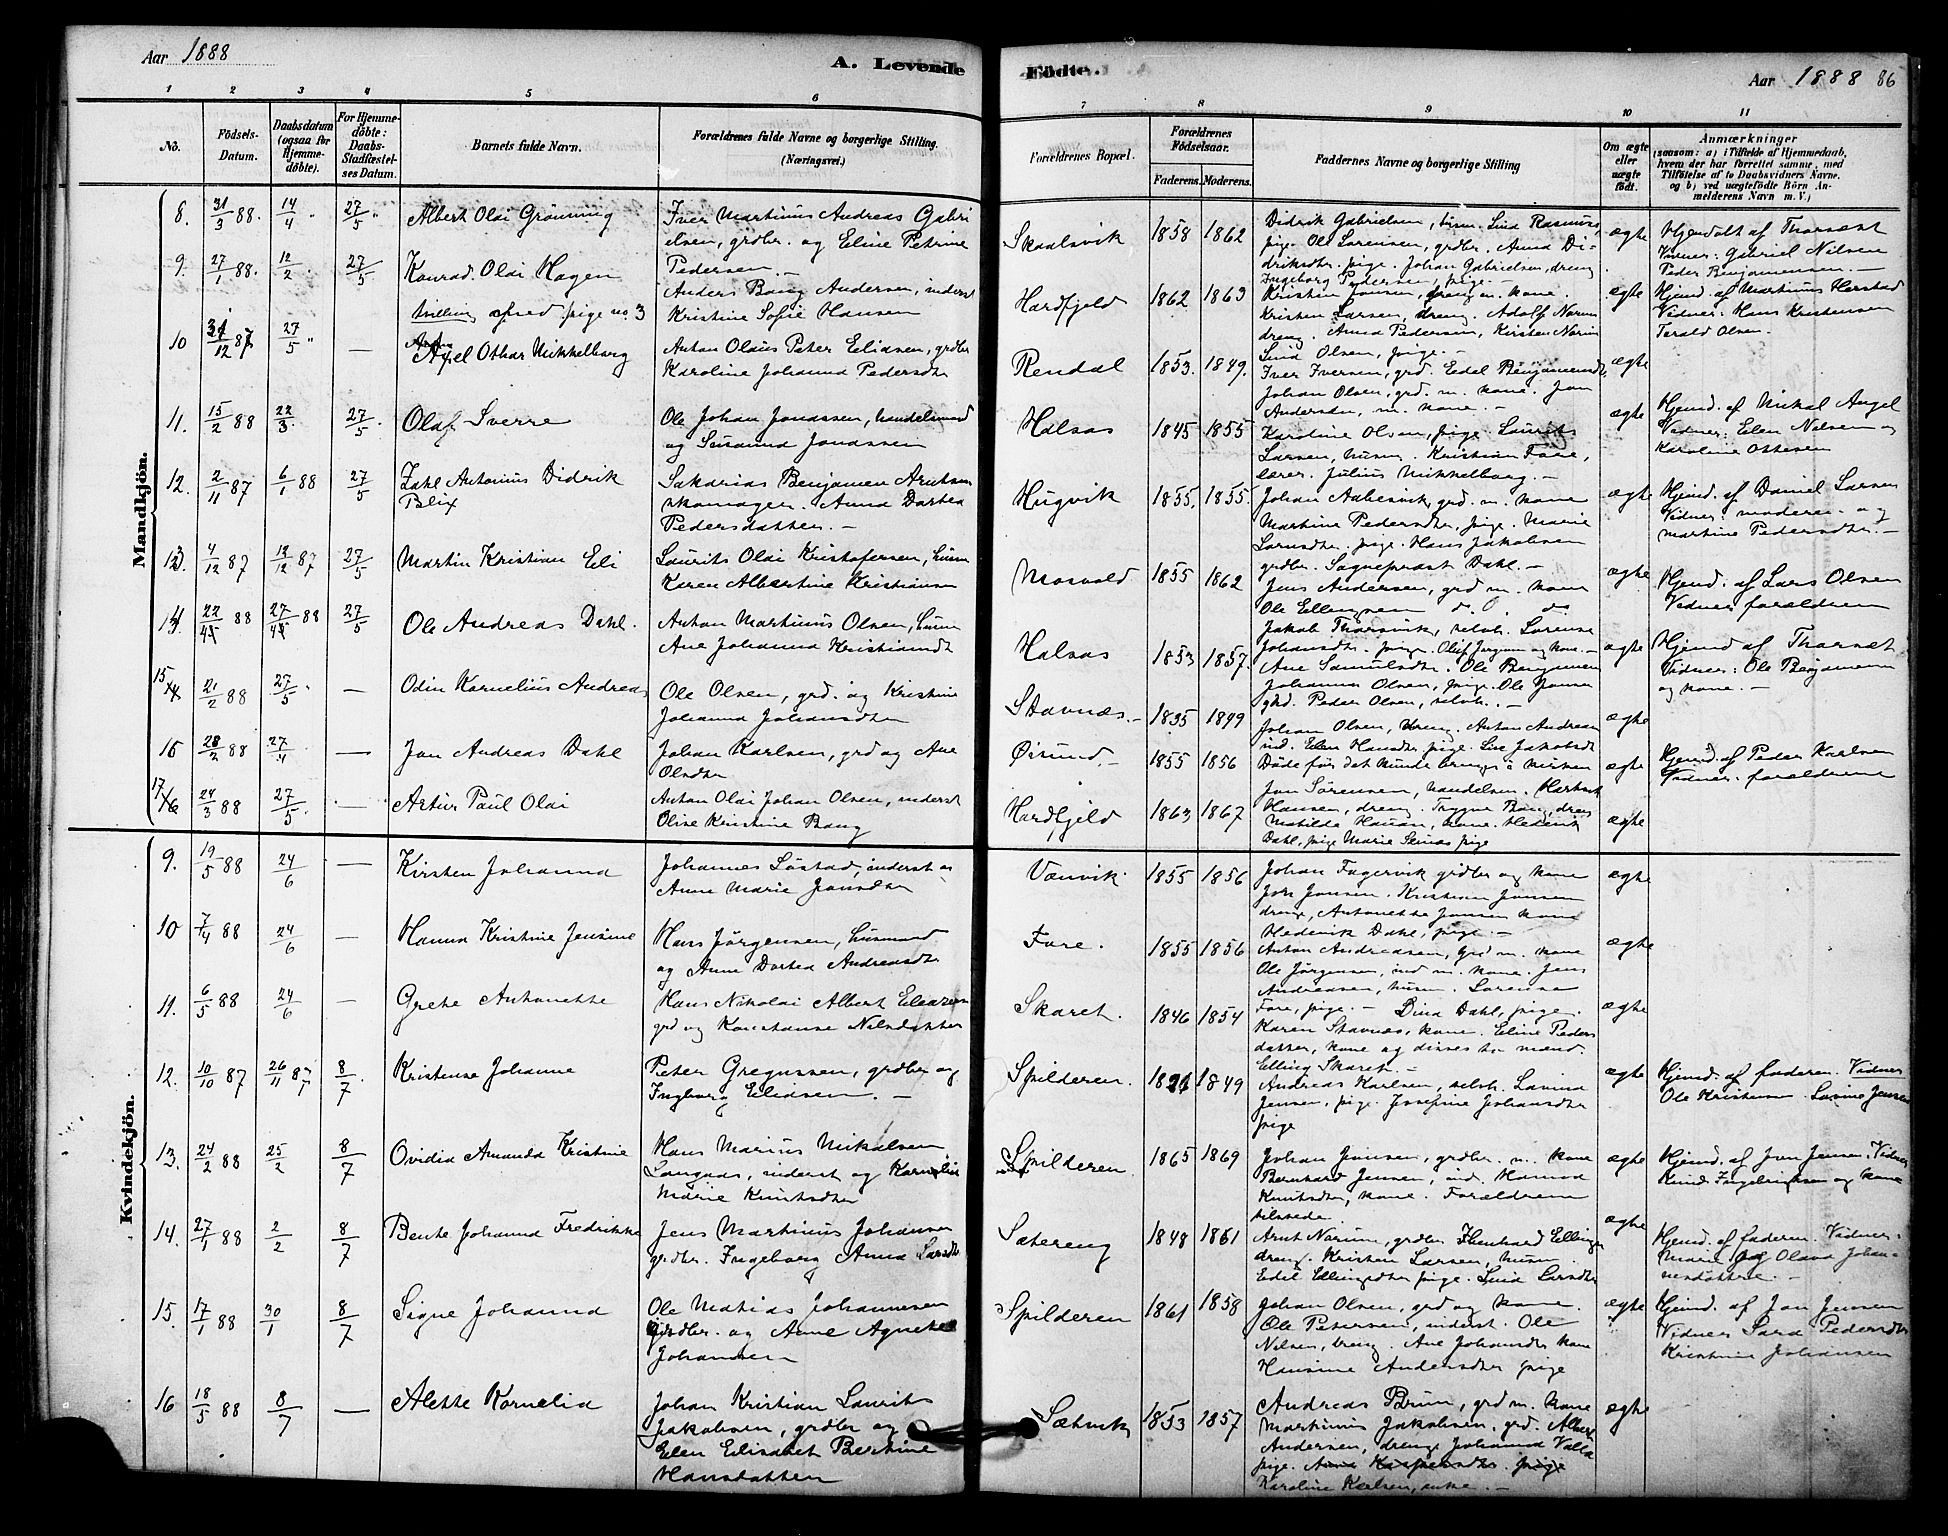 Aar 1888
A. Levende
Födte.
Aar 1888 86
1 2 3 4 5 6 7 8 9 10 11
No.
Födsels-
Datum.
Daabsdatum
(ogsaa for
Hjemme-
döbte).
For Hjemme-
döbte:
Daabs-
Stadfæstel-
ses Datum.
Barnets fulde Navn.
Forældrenes fulde Navne og borgerlige Stilling.
(Næringsvei.)
Forældrenes Bopæl.
Forældrenes
Födselsaar.
Faderens. Moderens.
Faddernes Navne og borgerlige Stilling
Om ægte
eller
uægte
födt.
Anmærkninger
(saasom: a) i Tilfælde af Hjemmedaab,
hvem der har forrettet samme, med
Tilföielse af to Daabsvidners Navne.
og b) ved uægtefödte Börn An-
melderens Navn m. V.)
Mandkjön.
8. 31/3 88. 14/4 " 27/5 "
Albert Olai Grønning
Iver Martinus Andreas Gabri
elsen, grdbr. og Eline Petrine
Pedersen.
Skaalsvik 1858 1862
Didrik Gabrielsen,
pige. Ole Larsensen, grdbr. Anna Di-
driksdtr. pige. Johan Gabrielsen, dreng
Ingeborg Pedersen, pige.
ægte
Vidner: Gabriel Nilsen
Peder Benjaminsen.
9. 27/1 88. 12/2 . 27/5
Konrad Olai Hagen
tvilling
pige no. 3
Anders Bang Andersen, inderst
Kristine Sofie Hansen
Hardfjeld 1862 1863
Kristen Larsen, dreng. Adolf
dreng. Anna Pedersen, Kirsten
Lina Olsen, pige.
ægte
Hjemd. af Martinus
Vidner: Hans Kristensen
Olsen.
10 31/12 87 27/5 " —
Axel Othar Mikkelborg
Anton Olaus Peter Eliasen, grdbr
Karoline Johanna Pedersdtr
Rendal 1853. 1849.
Iver Iversen, grd. Edel Benjaminsdtr,
Johan Olsen, grd. m. kone. Jon
Andersen, m. kone.
ægte
11. 15/2 88 22/3. 27/5.
Olaf Sverre
Ole Johan Jonassen, handelsmand
og Susanna Jonassen
Halsaa 1845 1855
Karoline Olsen, pige. Laurits
Larsen, husm. Kristian Fore,
lærer. Julius Mikkelborg.
ægte
Hjemd. af Mikal Angel
Vidner: Elen Nilsen og
Karoline Ottesen
12. 2/11 87 6/1 88 27/5
Zahl Antonius Didrik
Blix
Sakarias Benjamin Arntsen
skomager. Anna Dortea
Pedersdatter.
Hugvik 1855. 1855.
Johan Aabesvik, grd. m. kone
Martine Pedersdtr, pige. Marie
Larsdtr. pige. Hans Jakobsen
grdbr. Sogneprest Dahl.
ægte
Hjemd. af Daniel Larsen
Vidner: moderen og
Martine Pedersdtr.
13. 4/12 87 18/12 87 27/5
Martin Kristian Eli
Laurits Olai Kristofersen, husm
Karen Albertine Kristiansen
Mosvold 1855 1862
Jens Andersen, grd m. kone
Ole Ellingsen
ægte
Hjemd. af Lars Olsen
Vidner forældrene
14. 22/4 88 27/4 88 27/5
Ole Andreas Dahl.
Anton Martinus Olsen, husm
Ane Johanna Kristiansdtr
Halsaa 1853 1857.
Jakob Tharsvik, selvb. Lorense
Johansdtr. pige. Oluf Jørgen og kone.
Ane Samuelsdtr. Ole Benjamin
ægte
Vidner: Ole Benjamin
og kone.
15 21/2 88 27/5. —
Odin Kornelius Andreas
Ole Olsen, grd. og Kristine
Johanna Johansdtr
Stavnæs. 1835 1849
Johanna Olsen, pige. Ole Jonsen
grd. Peder Olsen, selvb.
ægte
16 28/2 88 27/4 —
Jan Andreas Dahl
Johan Karlsen, grd og Ane
Olsdtr
Øisund. 1855 1856
Johan Olsen, dreng. Anton Andreas
ind. Elen Hansdtr pige.
Døde før det kunde bringes i kirken
ægte
Hjemd. af Peder Karlsen
Vidner: forældrene
17 24/3 88 27/5. —
Artur Paul Olai
Anton Olai Johan Olsen, inderst
Oline Kristine Bang
Hardfjeld 1863 1867
Jon Sörensen, handelsm.
Hansen, dreng. Trygve Bang, dreng
Matilde Hansen, kone. Hedevik
Dahl, pige Marie pige
ægte
Kvindekjön.
9. 19/5 88 24/6 —
Kirsten Johanna
Johannes Løstad, inderst og
Anne Marie Jonsdtr
Vænvik. 1855 1856
Johan Fagervik grdbr og kone
Jon Jonsen. Kristian Jonsen
dreng, Antonette Jonsen kone
Hedevik Dahl, pige.
ægte
10 7/4 88 24/6 —
Hanna Kristine Jensine
Hans Jørgensen, husmand
og Anne Dortea Andreasdtr
Fore. 1855 1856
Anton Andreasen, grd m. kone
Ole Jørgensen, ind m. kone. Jens
Andreasen, husm. Lorense
Fore, pige.
ægte
11. 6/5 88 24/6 —
Grete Antonette
Hans Nikolai Albert Eleazersen
grd og Konstanse Nilsdatter
Skaret. 1846 1854
Dina Dahl, pige.
Karen Stavnæs, kone. Eline Peders
datter, kone og disses to mænd.
Elling Skaret.
ægte
12. 10/10 87 26/11 87 8/7.
Kristense Johanne
Peter Gregussen, grdbr og
Ingborg Eliasen.
Spilderen. 1849
Andreas Karlsen, selvb. Lavina
Jensen, pige. Josefine Johansdtr
pige
ægte
Hjemd. af faderen. Vidner
Ole Kristensen. Lavine Jensen
13. 24/2 88 25/2 8/7
Ovidia Amanda Kristine
Hans Marius Mikalsen
Langaas, inderst og Kornelia
Marie Knutsdtr
Spilderen 1865 1869
Johan Jonsen, grdbr. m. kone
Bernhard Jensen, ind. Hanna
Knutsdtr, kone. Forældrene
tilstede
ægte
Hjemd. af Jon Jensen. Vidner
Knud Ingebrigtsen og kone
14. 27/1 88 2/2 8/7
Bente Johanna Fredrikke
Jens Martinus Johansen
grdbr. Ingeborg Anna Larsdtr
Sætereng 1848 1861
Arnt Narum, grdbr. Eberhard Ellingsen
dreng. Kristen Larsen, husm.
Edel Ellingsdtr pige. Lina Larsdtr
ægte
Hjemd. af faderen. Vidner:
Marie og Olava Johan-
nesdøttre.
15. 17/1 88 30/1 8/7
Signe Johanna
Ole Matias Johannesen
Grdbr. og Anne Agnethe
Johansen
Spilderen 1861 1858
Johan Olsen, grd og kone.
Ole Petersen, inderst. Ole
Nilsen, dreng. Ane Johansdtr kone
Hansine Andersdtr pige
ægte
Hjemd. af Jon Jensen
Vidner Sara Pedersdtr
Kristine Johansen
16 18/5 88 8/7 —
Alette Kornelia
Johan Kristian Laurits
Jakobsen, grdbr og
Elen Elisabet Bertine
Hansdatter
Sætvik 1853 1857
Andreas Brun, grd m. kone
Martinus Jakobsen, grd. Albert
Andersen, dreng Johanna Valla
pige. Anna Kaspersdtr. pige
Karoline Karlsen, enke.
ægte